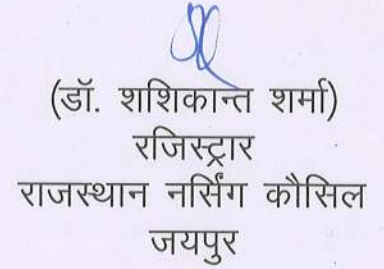 (डॉ. शशिकान्त शर्मा)
रजिस्ट्रार
राजस्थान नर्सिंग कौसिल
जयपुर